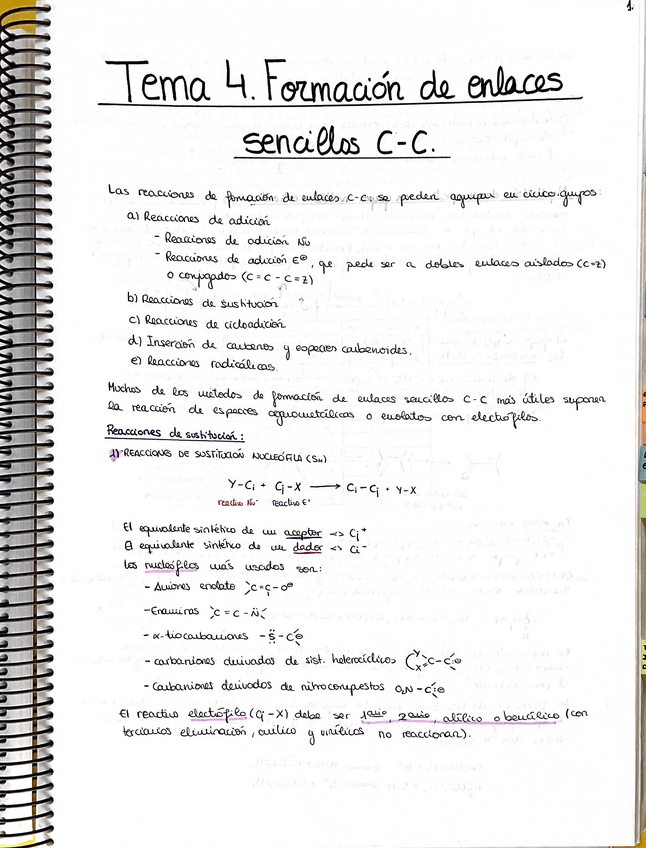 1.
Tema 4. Formación de enlaces
sencillos C-C.
Las reacciones de formación de enlaces C-C, se pueden agrupar en cinco grupos:
a) Reacciones de adición
- Reacciones de adición Nu
- Reacciones de adición E⊕, qe pede ser a dobles enlaces aislados (C=Z)
o conjugados (C=C-C=Z)
b) Reacciones de sustitución
c) Reacciones de cicloadición
d) Inserción de carbenos y especies carbenoides.
e) Reacciones radicálicas.
Muchos de los métodos de formación de enlaces sencillos C-C más útiles suponen
la reacción de especies organometálicas o enolatos con electrófilos.
Reacciones de sustitución:
1) REACCIONES DE SUSTITUCIÓN NUCLEÓFILA (SN)
Y-Ci + Cj-X → Ci-Cj + Y-X
reactivo Nu⁻ reactivo E⁺
El equivalente sintético de un aceptor <=> Cj⁺
El equivalente sintético de un dador <=> Ci⁻
Los nucleófilos más usados son:
- Aniones enolato >C=C-O⊖
- Enaminas >C=C-N̈<
- α-tiocarbaniones -S̈-C⊖
- carbaniones derivados de sist. heterocíclicos (Y X C-C⊖
- Carbaniones derivados de nitrocompestos O₂N-C⊖
El reactivo electrófilo (Cj-X) debe ser 1ario, 2ario, alílico o bencílico (con
terciarios eliminación, arílico y vinílicos no reaccionan).